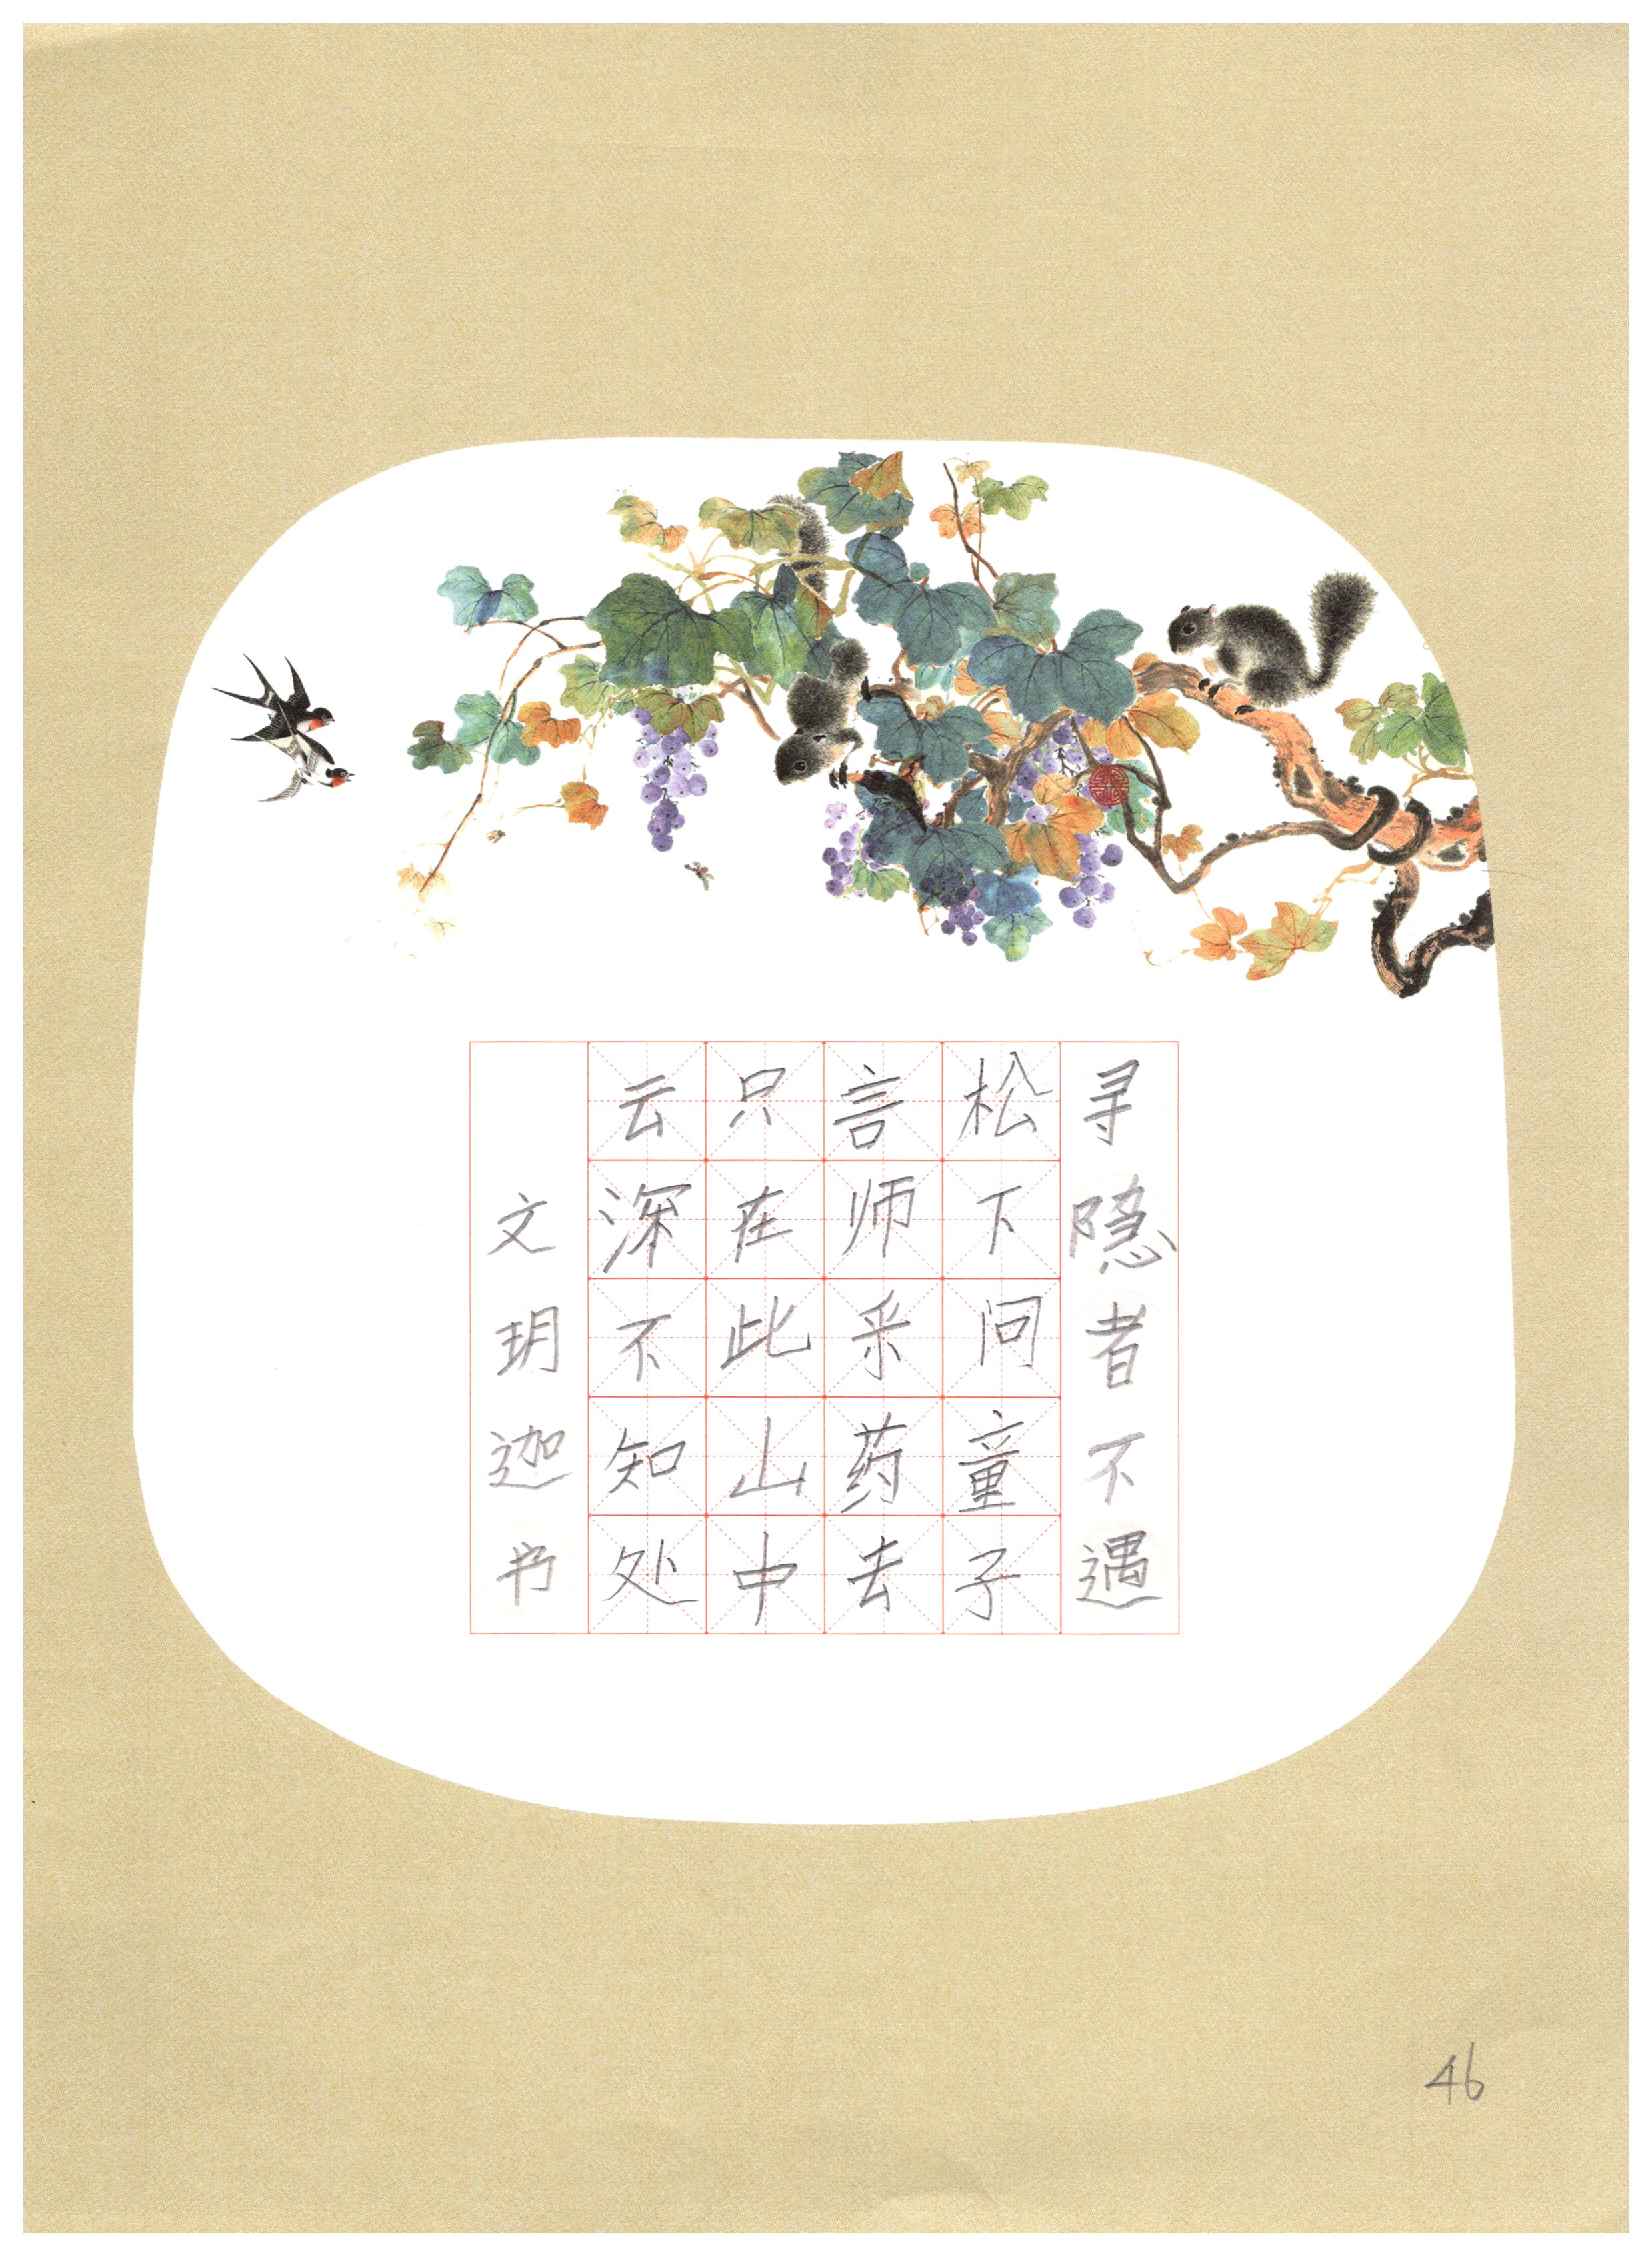 寻隐者不遇
松下问童子
言师采药去
只在此山中
云深不知处
文玥迦书
46